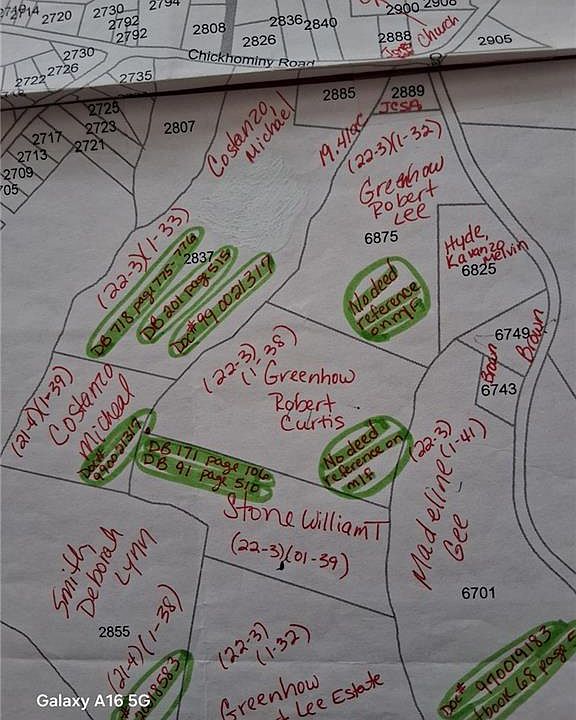 2714
2720
2730
2792
2792
2794
2808
2836
2840
2826
2900
2908
2888
Church
2905
Chickhominy Road
2730
2726
2722
2735
2725
2723
2721
2717
2713
2709
705
2807
Costanzo,
Michael
2885
2889
JCSA
19.41ac
(22-3)(1-32)
Greenhow
Robert
Lee
6875
Hyde,
Kavanzo
Melvin
6825
(22-3)(1-33)
2837
DB 718 page 775-776
DB 201 page 515
Doc# 990021317
No deed
reference
on m/f
6749
Brown
Brown
6743
(21-4)(1-39)
Costanzo
Micheal
Doc#
990021317
(22-3)
(1-38)
Greenhow
Robert
Curtis
No deed
reference on
m/f
DB 171 page 106
DB 91 page 510
(22-3)
(1-41)
Madeline
Gee
Stone William T
(22-3)(01-39)
Smith
Deborah
Lynn
2855
(21-4)(1-38)
6701
(22-3)
(1-32)
Greenhow
t Lee Estate
Doc# 990019183
book 68 page 5
Galaxy A16 5G